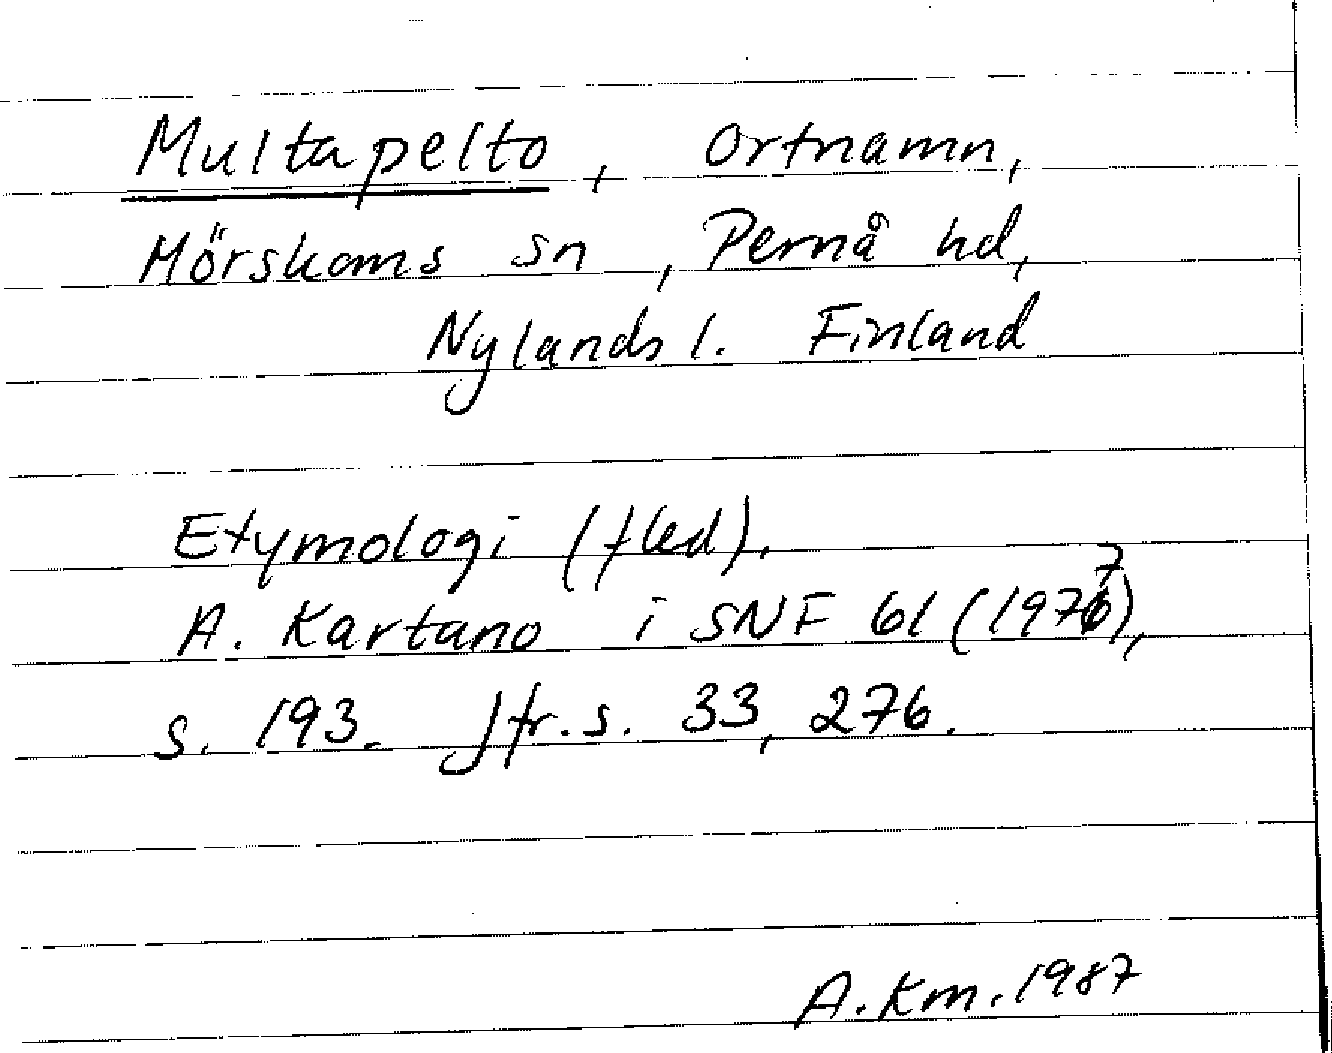 Multapelto, Ortnamn,
Mörskoms sn, Pernå hd,
Nylands l. Finland
Etymologi (fled).
A. Kartano i SNF 61 (1977),
s. 193. Jfr. s. 33, 276.
A.Km. 1987